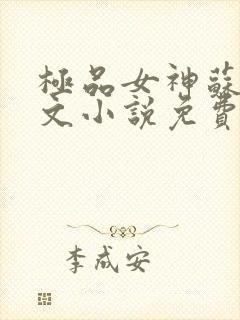 極品女神蘇
文小說免費
李成安